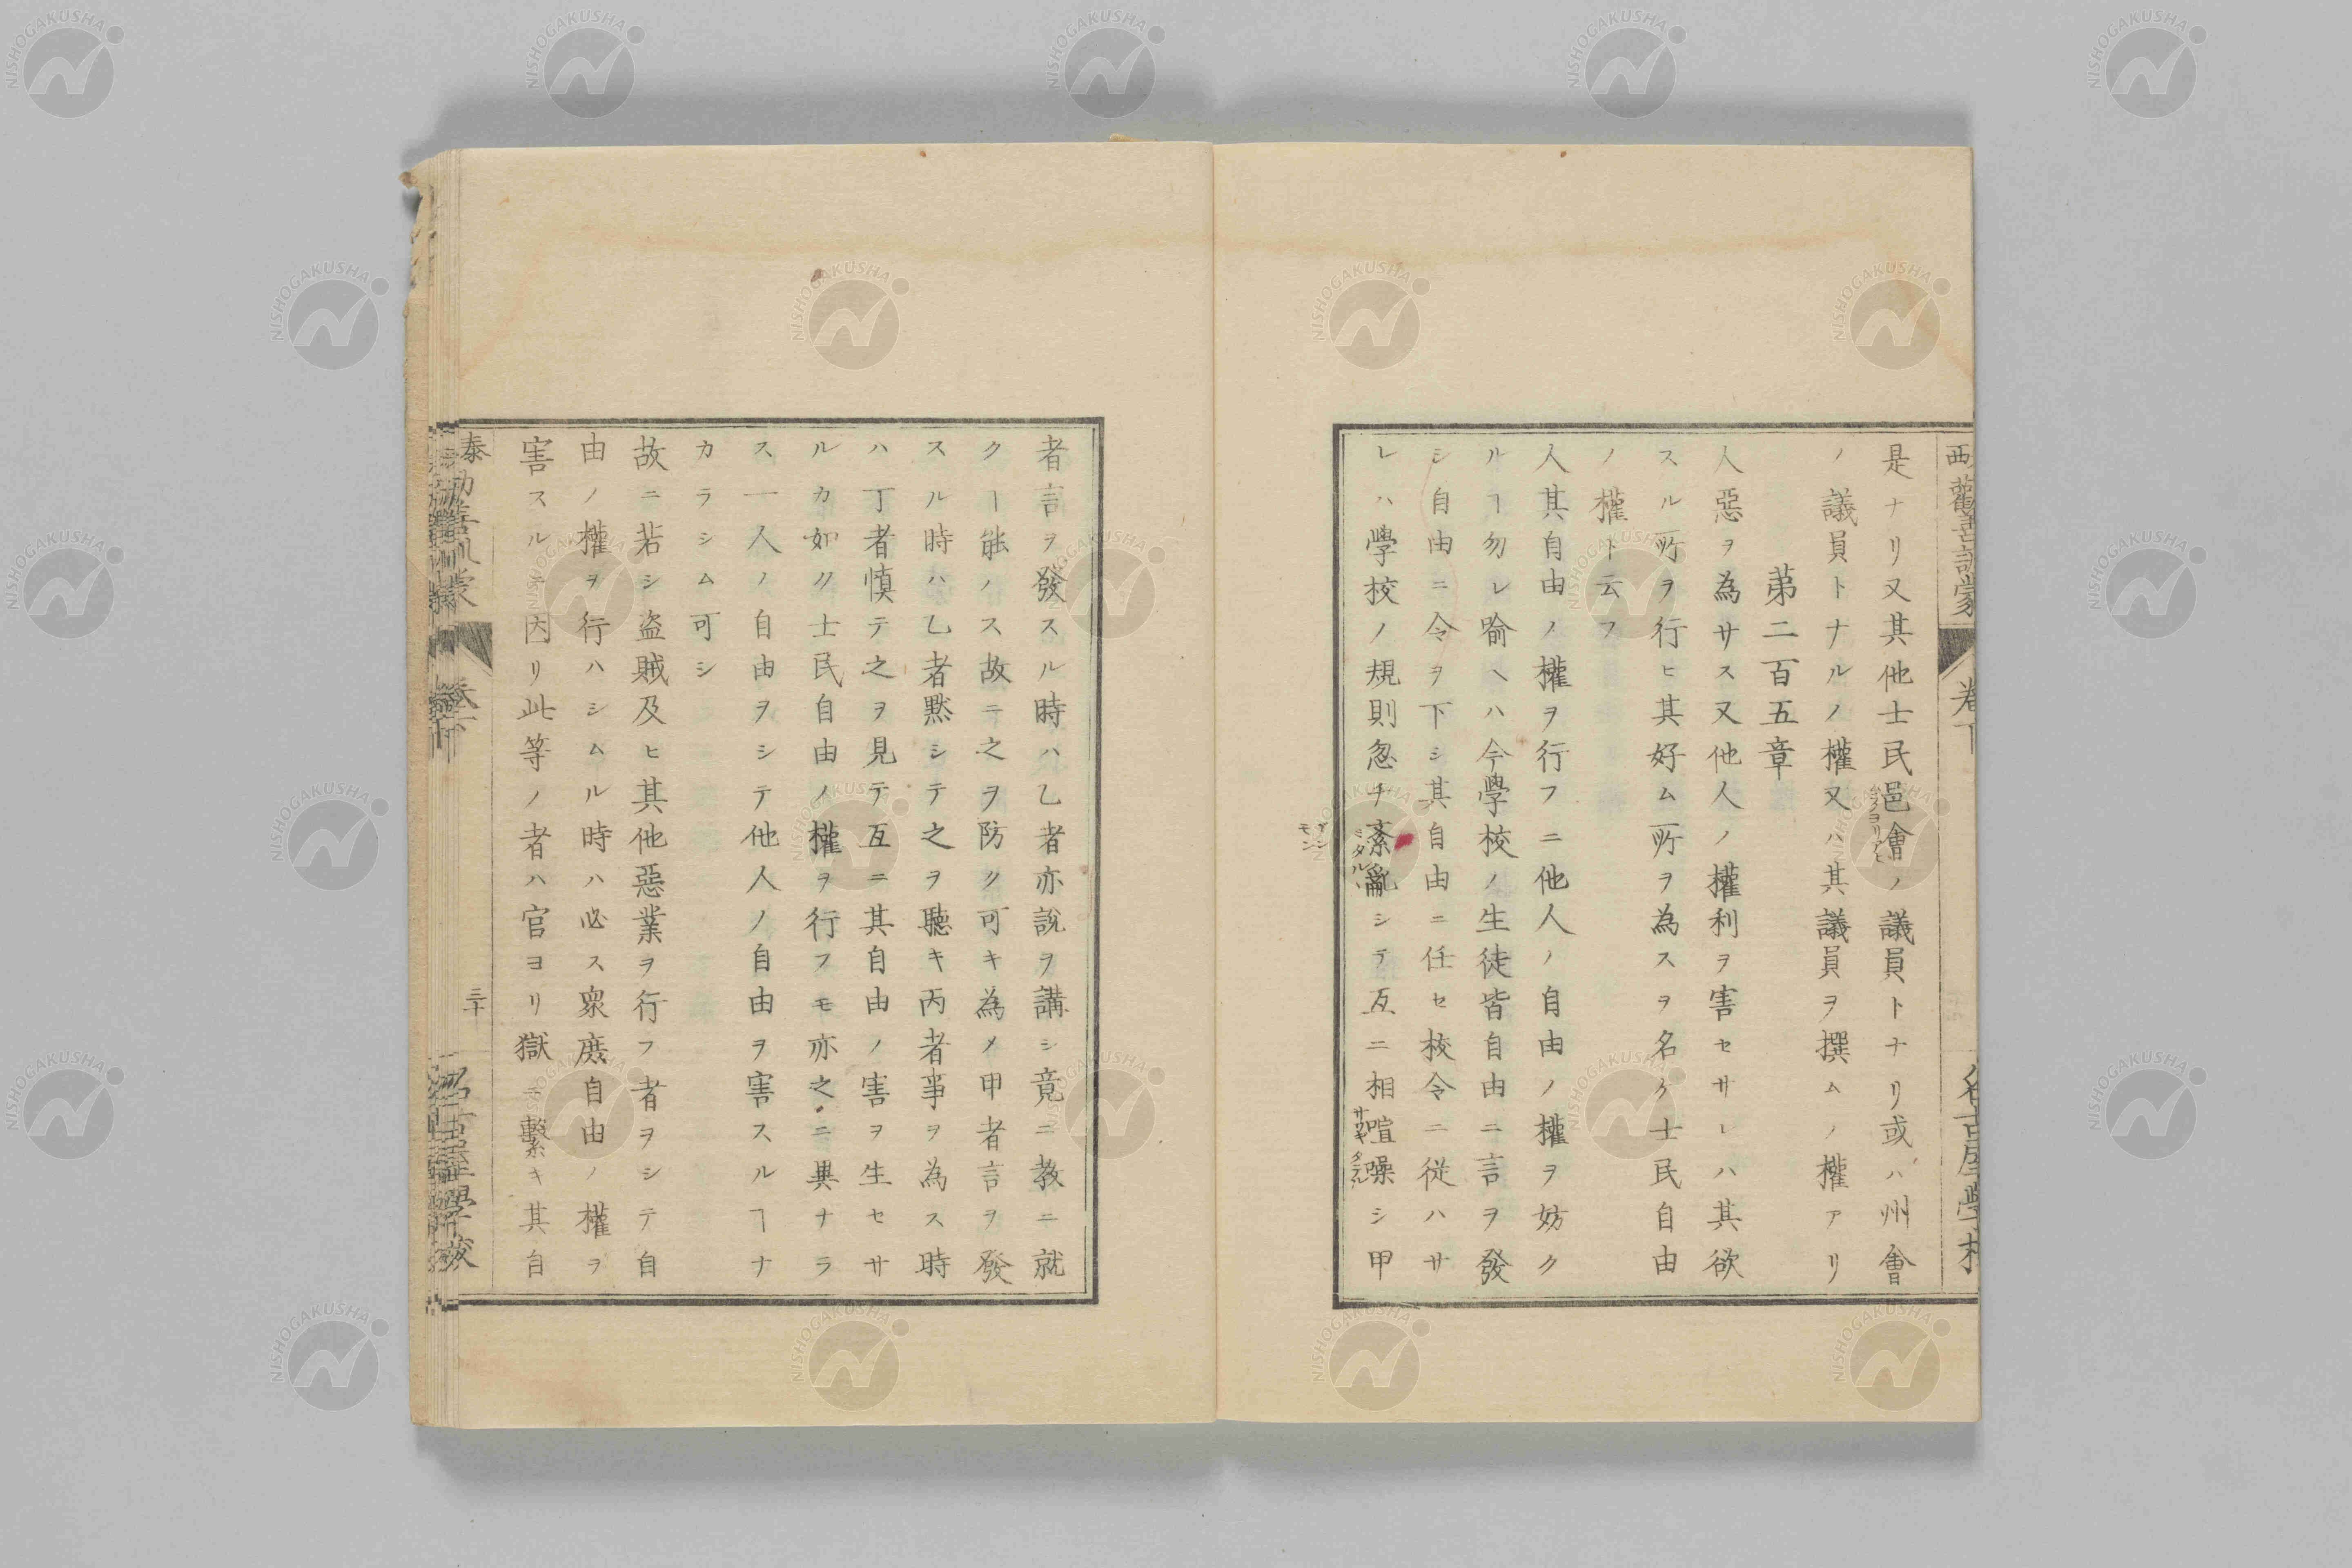 是ナリ又其他士民邑會ノ議員トナリ或ハ州會
ノ議員トナルノ權又ハ其議員ヲ撰ムノ權アリ
苐二百五章
人惡ヲ為サス又他人ノ權利ヲ害セサレハ其欲
スル所ヲ行ヒ其好ム所ヲ為スヲ名ケ士民自由
ノ權ト云フ
人其自由ノ權ヲ行フニ他人ノ自由ノ權ヲ妨ク
ルヿ勿レ喻ヘハ今學校ノ生徒皆自由ニ言ヲ發
シ自由ニ令ヲ下シ其自由ニ任セ校令ニ従ハサ
レハ學校ノ規則忽チ紊亂シテ互ニ相喧噪シ甲
者言ヲ發スル時ハ乙者亦說ヲ講シ竟ニ教ニ就
クヿ能ハス故ニ之ヲ防ク可キ為メ甲者言ヲ發
スル時ハ乙者黙シテ之ヲ聽キ丙者事ヲ為ス時
ハ丁者慎テ之ヲ見テ互ニ其自由ノ害ヲ生セサ
ルカ如ク士民自由ノ權ヲ行フモ亦之ニ異ナラ
ス一人ノ自由ヲシテ他人ノ自由ヲ害スルヿナ
カラシム可シ
故ニ若シ盗賊及ヒ其他惡業ヲ行フ者ヲシテ自
由ノ權ヲ行ハシムル時ハ必ス衆庶自由ノ權ヲ
害スルニ因リ此等ノ者ハ官ヨリ獄ニ繫キ其自
卷下
三十
NISHOGAKUSHA